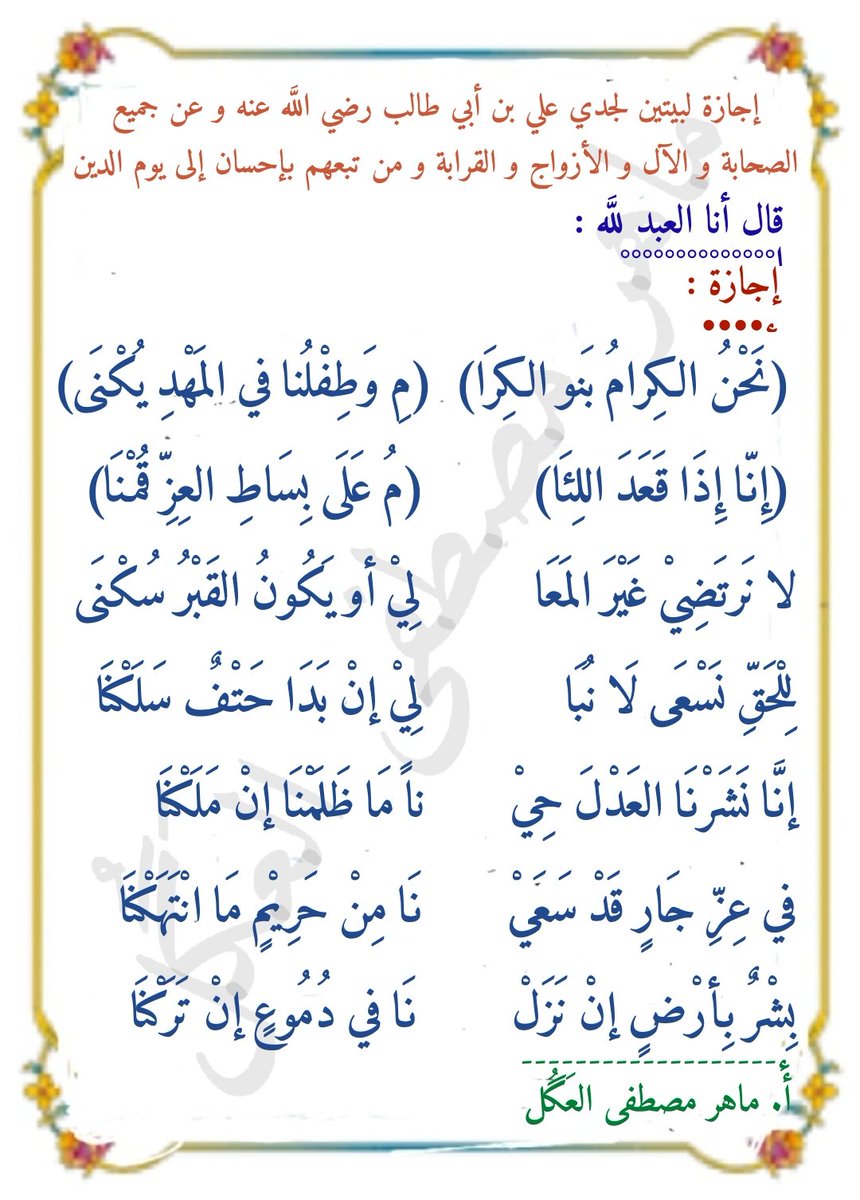 إجازة لبيتين لجدي علي بن أبي طالب رضي الله عنه و عن جميع
الصحابة و الآل و الأزواج و القرابة و من تبعهم بإحسان إلى يوم الدين
قال أنا العبد لله :
إجازة :
(نَحْنُ الكِرامُ بَنو الكِرَا) (مِ وَطِفْلُنا في المَهْدِ يُكْنَى)
(إِنّا إِذَا قَعَدَ اللِئَا) (مُ عَلَى بِسَاطِ العِزِّ قُمْنَا)
لا نَرتَضِيْ غَيْرَ المَعَا لِيْ أو يَكُونُ القَبْرُ سُكْنَى
لِلْحَقِّ نَسْعَى لَا نُبَا لِيْ إنْ بَدَا حَتْفٌ سَلَكْنَا
إنَّا نَشَرْنَا العَدْلَ حِيْ ناً مَا ظَلَمْنَا إنْ مَلَكْنَا
في عِزِّ جَارٍ قَدْ سَعَيْ نَا مِنْ حَرِيْمٍ مَا انْتَهَكْنَا
بِشْرٌ بِأرْضٍ إنْ نَزَلْ نَا في دُمُوعٍ إنْ تَرَكْنَا
أ. ماهر مصطفى العَگُل
ماهر مصطفى العگل